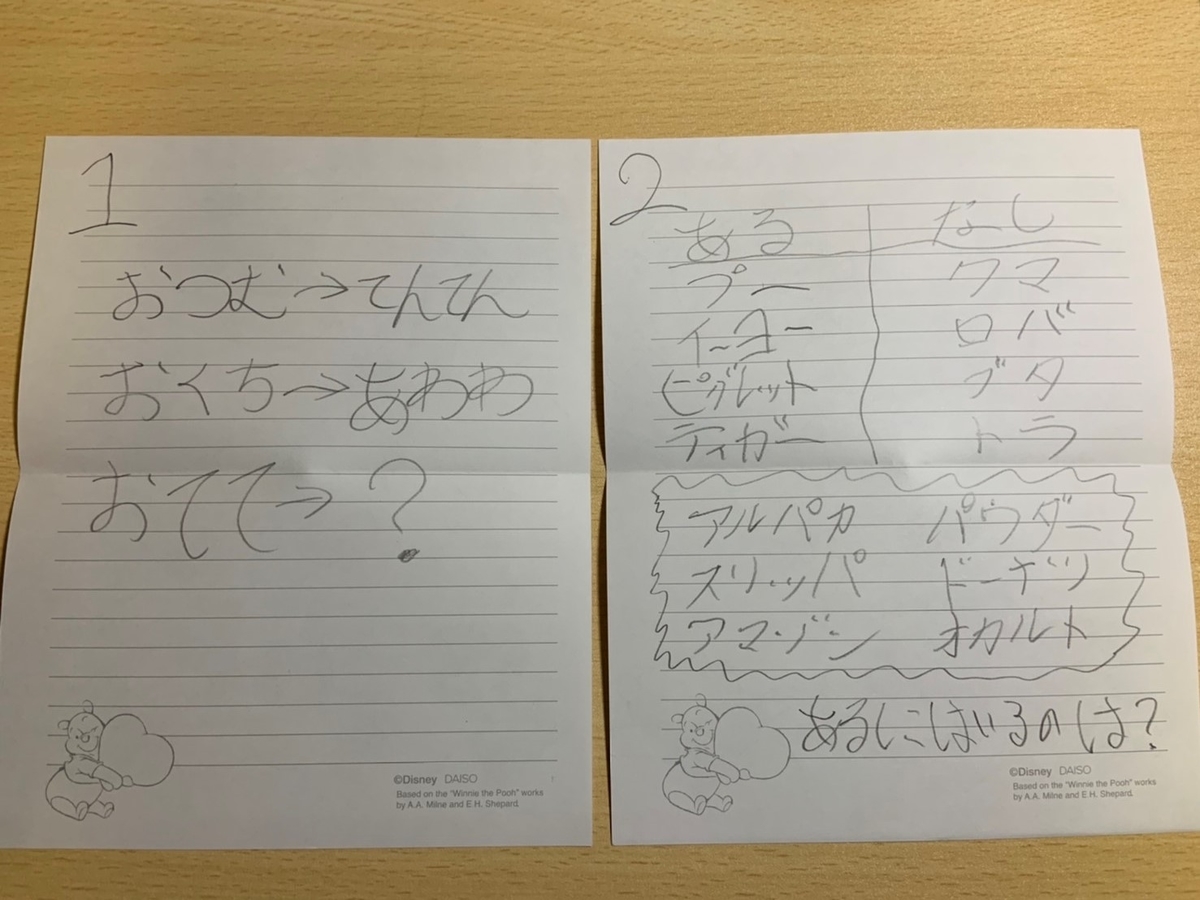 1
おつむ→てんてん
おくち→あわわ
おてて→?
©Disney DAISO
Based on the "Winnie the Pooh" works
by A.A. Milne and E.H. Shepard.
2
ある なし
プー クマ
イーヨー ロバ
ピグレット ブタ
ティガー トラ
アルパカ パウダー
スリッパ ドーナツ
アマゾン オカルト
あるにはいるのは?
©Disney DAISO
Based on the "Winnie the Pooh" works
by A.A. Milne and E.H. Shepard.